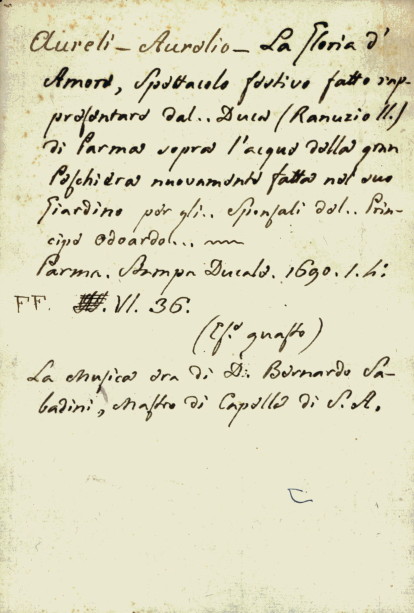 Aureli - Aurelio - La Gloria d'
Amore, Spettacolo festivo fatto rap-
presentare dal.. Duca (Ranuzio II.)
di Parma sopra l'acque della gran
Peschiera nuovamente fatta nel suo
Giardino per gli.. Sponsali del.. Prin-
cipe Odoardo...
Parma. Stampa Ducale. 1690. 1. 4:
FF. VI. 36.
(Es.e guasto)
La Musica era di D: Bernardo Sa-
badini, Mastro di Capella di S. A.